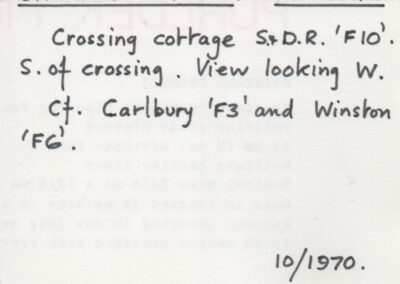 Crossing cottage S.&D.R. 'F10'.
S. of crossing. View looking W.
Cf. Carlbury 'F3' and Winston
'F6'
10/1970.